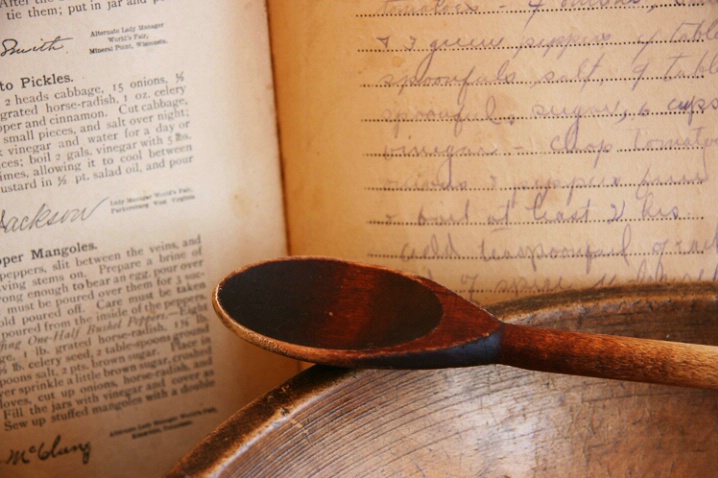 After the
tie them; put in jar and po
Smith
Alternate Lady Manager
World's Fair,
Mineral Point, Wisconsin.
to Pickles.
2 heads cabbage, 15 onions, ½
grated horse-radish, 1 oz. celery
per and cinnamon. Cut cabbage,
small pieces, and salt over night;
vinegar and water for a day or
ces; boil 2 gals. vinegar with 5 lbs.
imes, allowing it to cool between
ustard in ½ pt. salad oil, and pour
Jackson
Lady Manager World's Fair,
Parkersburg West Virginia
pper Mangoles.
peppers, slit between the veins, and
aving stems on. Prepare a brine of
rong enough to bear an egg, pour over
must be poured over them for 3 suc-
old poured off. Care must be taken
poured from the inside of the peppers.
ing One-Half Bushel Peppers—Eight
ge, 1 lb. grated horse-radish,
lb. celery seed, 2 table-spoons
poons salt, 2 pts. brown sugar. Place in
er sprinkle a little brown sugar, crushed
loves, cut up onions, horse-radish, and
Fill the jars with vinegar and cover
Sew up stuffed mangoles with a double
McClung
Alternate Lady Manager World's Fair,
tomatoes - 4 onions,
& 3 green peppers 4 table
spoonfuls salt, 4 tabl
spoonfuls sugar, 6 cups
vinegar - chop tomato
onions & peppers fine
& boil at least 2 hrs.
add teaspoonful of each